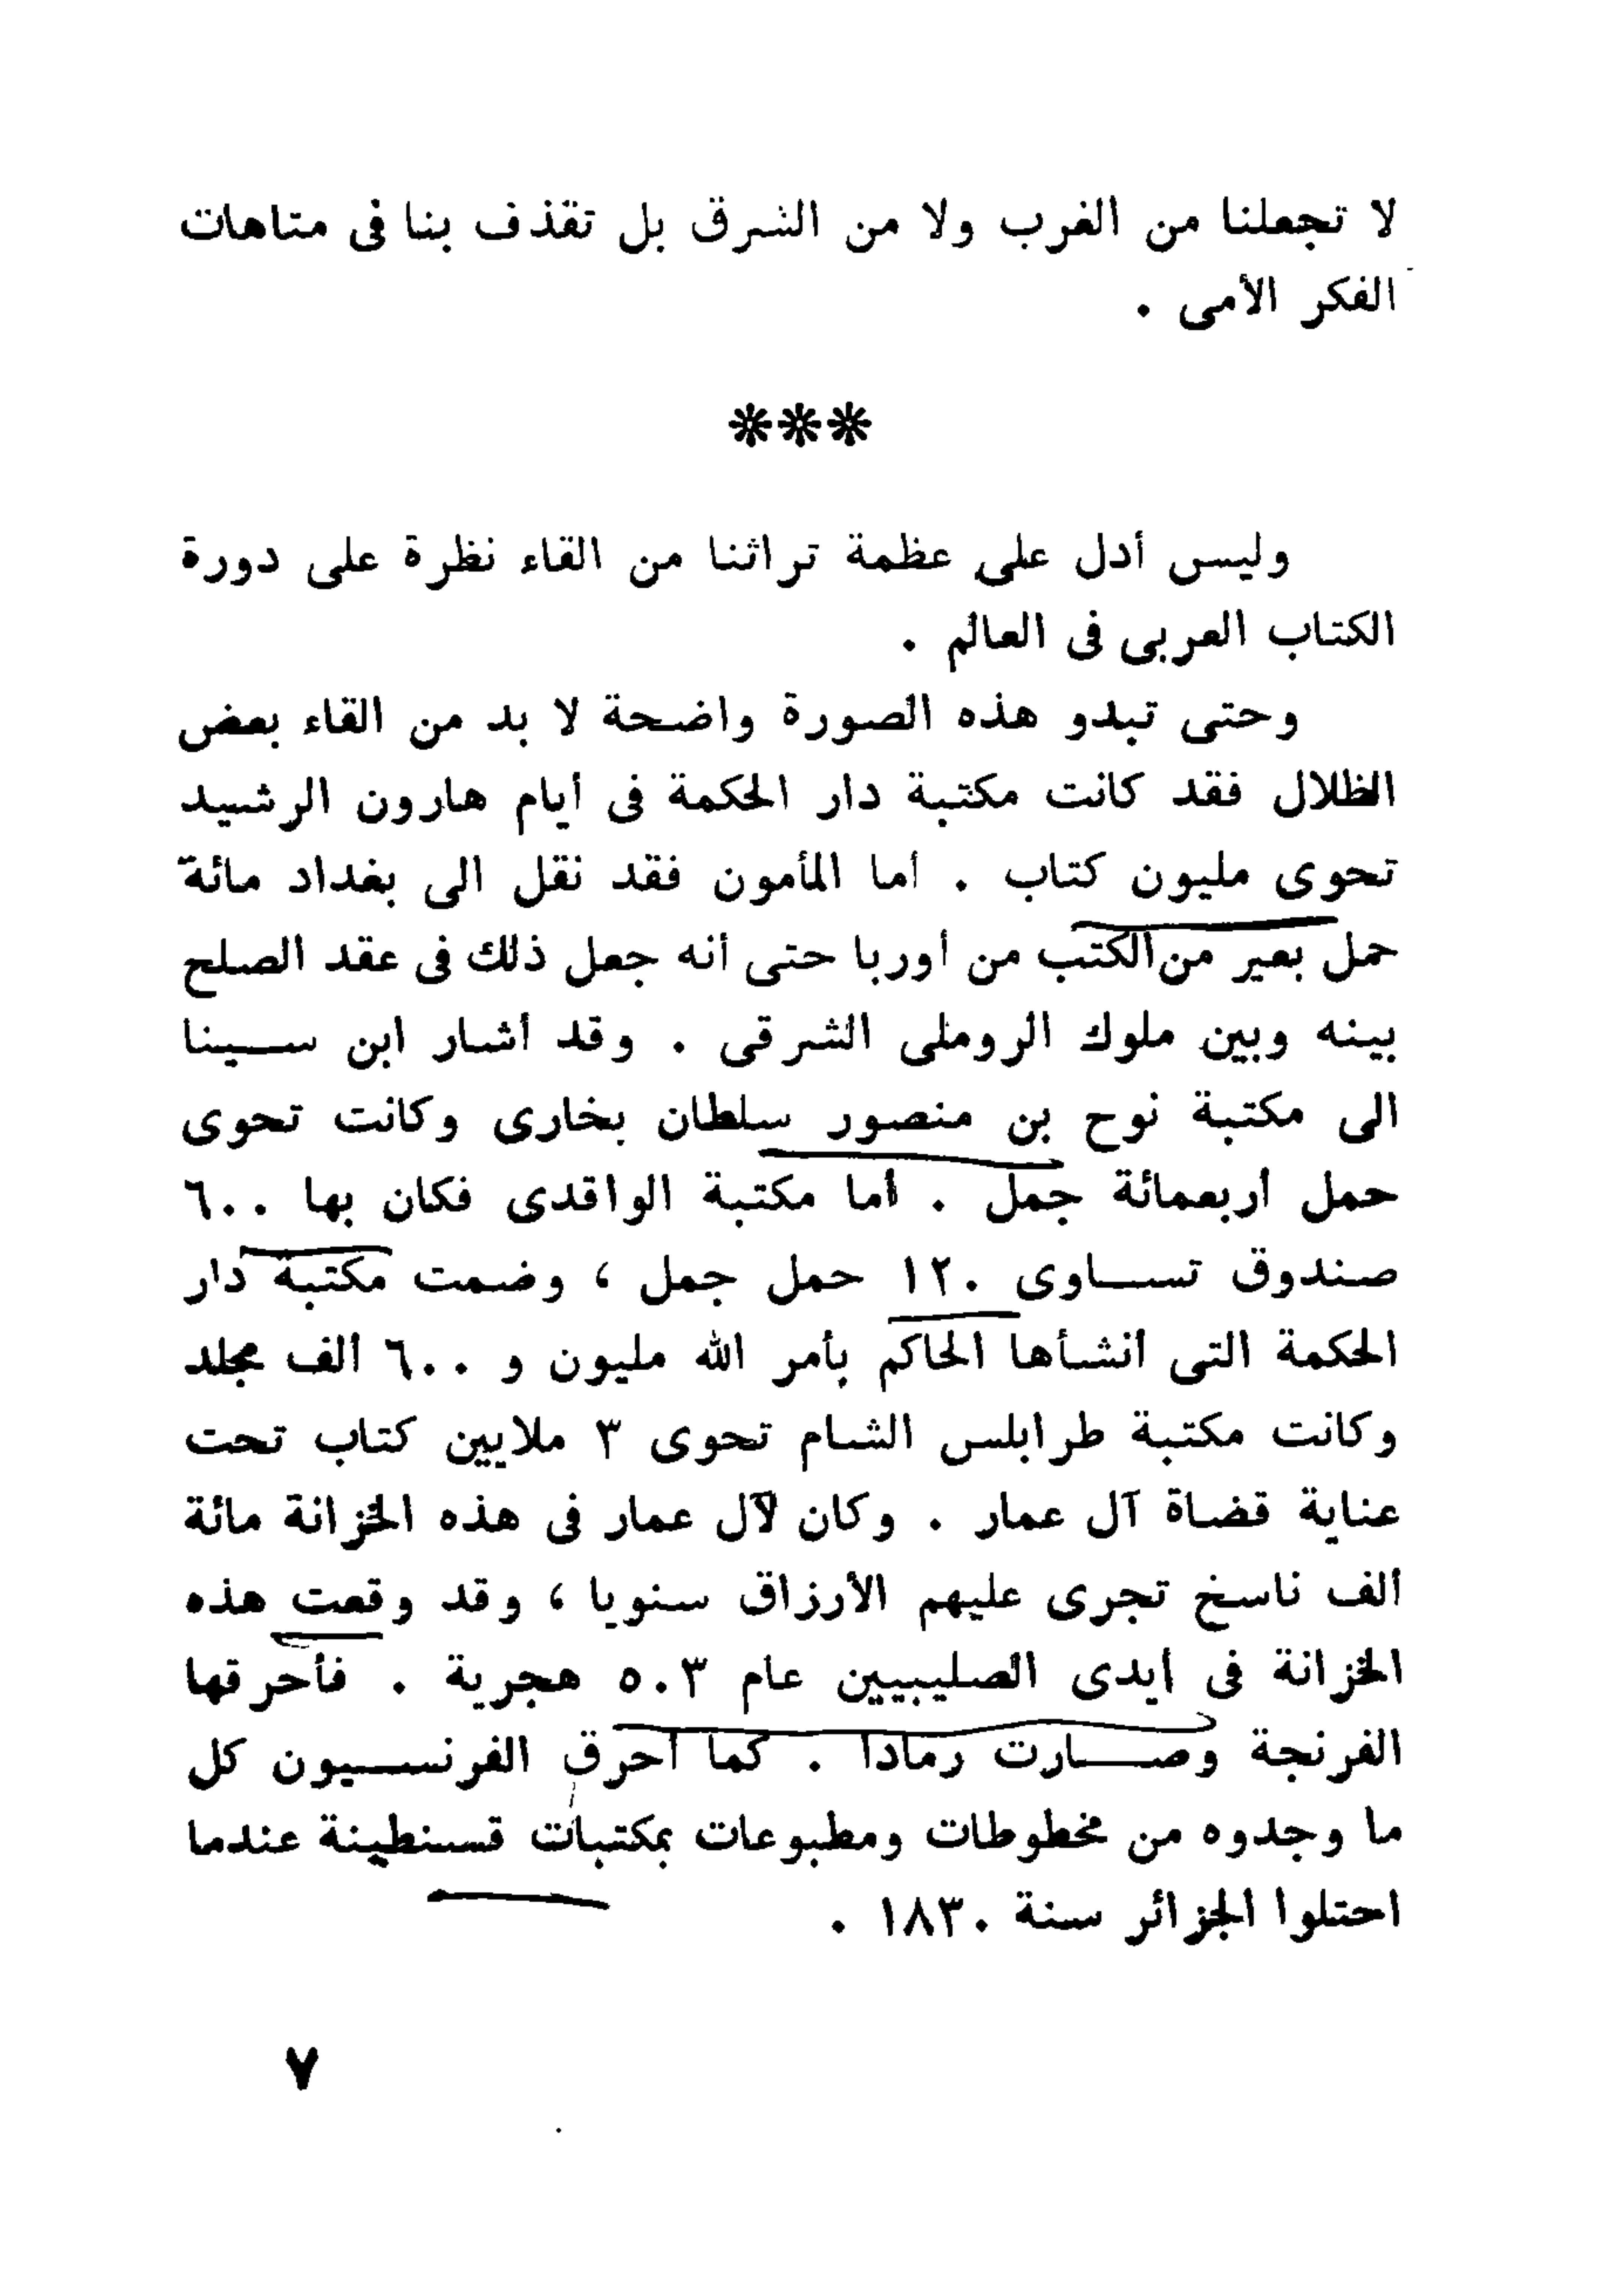 لا تجعلنا من الغرب ولا من الشرق بل تقذف بنا فى متاهات
الفكر الأمى .
***
وليس أدل على عظمة تراثنا من القاء نظرة على دورة
الكتاب العربى فى العالم .
وحتى تبدو هذه الصورة واضحة لا بد من القاء بعض
الظلال فقد كانت مكتبة دار الحكمة فى أيام هارون الرشيد
تحوى مليون كتاب . أما المأمون فقد نقل الى بغداد مائة
حمل بعير من الكتب من أوربا حتى أنه جعل ذلك فى عقد الصلح
بينه وبين ملوك الروملى الشرقى . وقد أشار ابن سينا
الى مكتبة نوح بن منصور سلطان بخارى وكانت تحوى
حمل أربعمائة جمل . أما مكتبة الواقدى فكان بها ٦٠٠
صندوق تساوى ١٢٠ حمل جمل ، وضمت مكتبة دار
الحكمة التى أنشأها الحاكم بأمر الله مليون و ٦٠٠ ألف مجلد
وكانت مكتبة طرابلس الشام تحوى ٣ ملايين كتاب تحت
عناية قضاة آل عمار . وكان لآل عمار فى هذه الخزانة مائة
ألف ناسخ تجرى عليهم الأرزاق سنويا ، وقد وقعت هذه
الخزانة فى أيدى الصليبيين عام ٥٠٣ هجرية . فأحرقها
الفرنجة وصارت رمادا . كما أحرق الفرنسيون كل
ما وجدوه من مخطوطات ومطبوعات بمكتبات قسنطينة عندما
احتلوا الجزائر سنة ١٨٣٠ .
٧